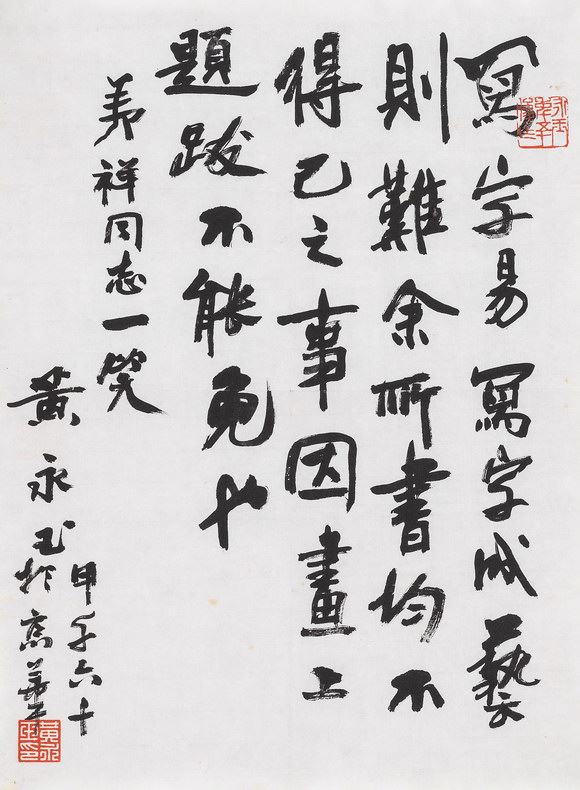 寫字易寫字成藝
則難余所書均不
得已之事因畫上
題跋不能免也
祥同志一笑
黃永玉
甲子六十
於京華
黃永玉印